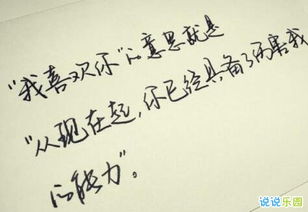 “我喜欢你”的意思就是
“从现在起,你已经具备了伤害我
的能力”。
说说乐园